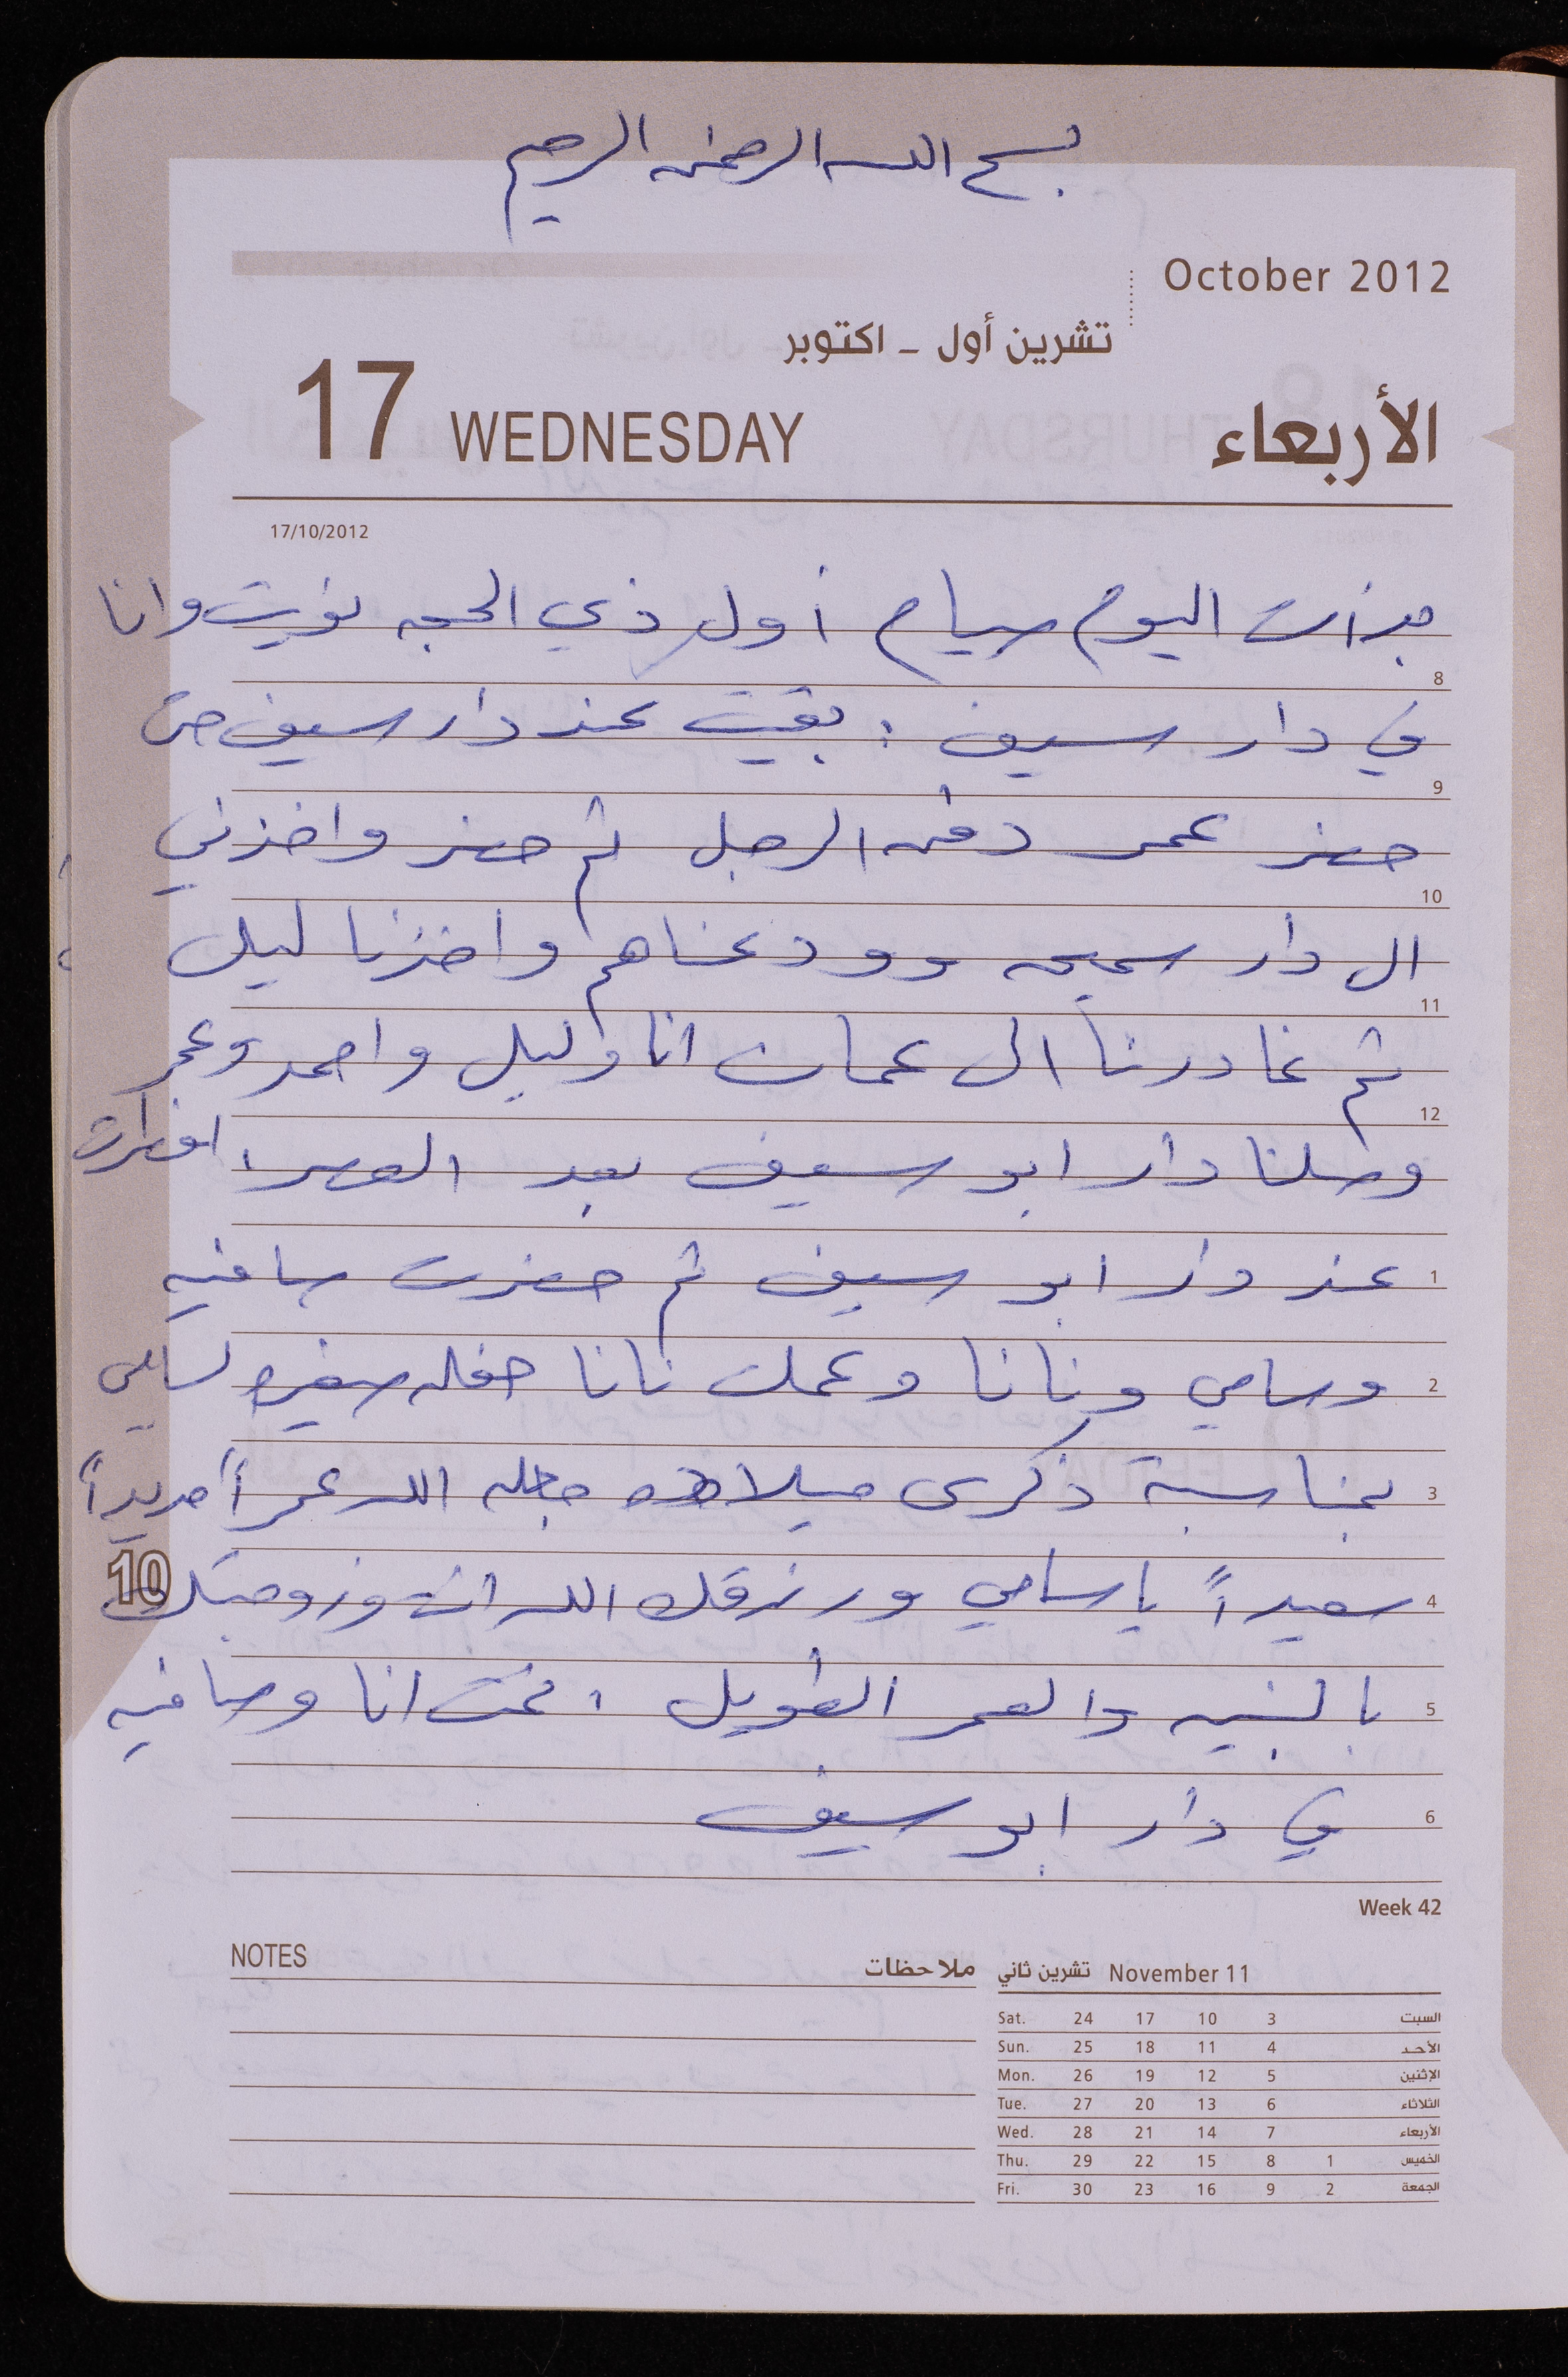 بسم الله الرحمن الرحيم
October 2012
تشرين أول - اكتوبر
17 WEDNESDAY الأربعاء
17/10/2012
بدأت اليوم صيام أول ذي الحجه نويت وانا
8
في دار سيف : بقيت عند دار سيف حتى
9
حضر عمر دفن الرجل ثم حضر واخذني
10
الى دار سميحه وودعناهم واخذنا ليلى
11
ثم غادرنا الى عمان انا وليلى واحمد وعمر
12
وصلنا دار ابو سيف بعد العصر، افطرت
عند دار ابو سيف ثم حضرت صافيه
1
وسامي ونانا وعملت نانا حفله صغيره لسامي
2
بمناسبة ذكرى ميلاده جعله الله عمراً مديداً
3
سعيداً يا سامي ورزقك الله انت وزوجتك
4
10
بالبنيه والعمر الطويل ، نمت انا وصافيه
5
في دار ابو سيف
6
Week 42
NOTES ملاحظات
November 11 تشرين ثاني
Sat. 24 17 10 3 السبت
Sun. 25 18 11 4 الأحد
Mon. 26 19 12 5 الإثنين
Tue. 27 20 13 6 الثلاثاء
Wed. 28 21 14 7 الأربعاء
Thu. 29 22 15 8 1 الخميس
Fri. 30 23 16 9 2 الجمعة